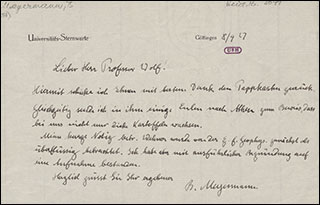 Universitäts-Sternwarte
Göttingen 8/9 27
Lieber Herr Professor Wolf!
Hiermit schicke ich Ihnen mit bestem Dank den Pappkasten zurück.
Gleichzeitig sende ich in ihm einige Eulen nach Athen zum Beweis, dass
bei uns nicht nur dicke Kartoffeln wachsen.
Meine kurze Notiz betr. wurde von der g. f. Geophys. zunächst als
überflüssig betrachtet. Ich habe aber mit ausführlicher Begründung auf
die Aufnahme bestanden.
Herzlich grüsst Sie Ihr ergebener
B. Meyermann